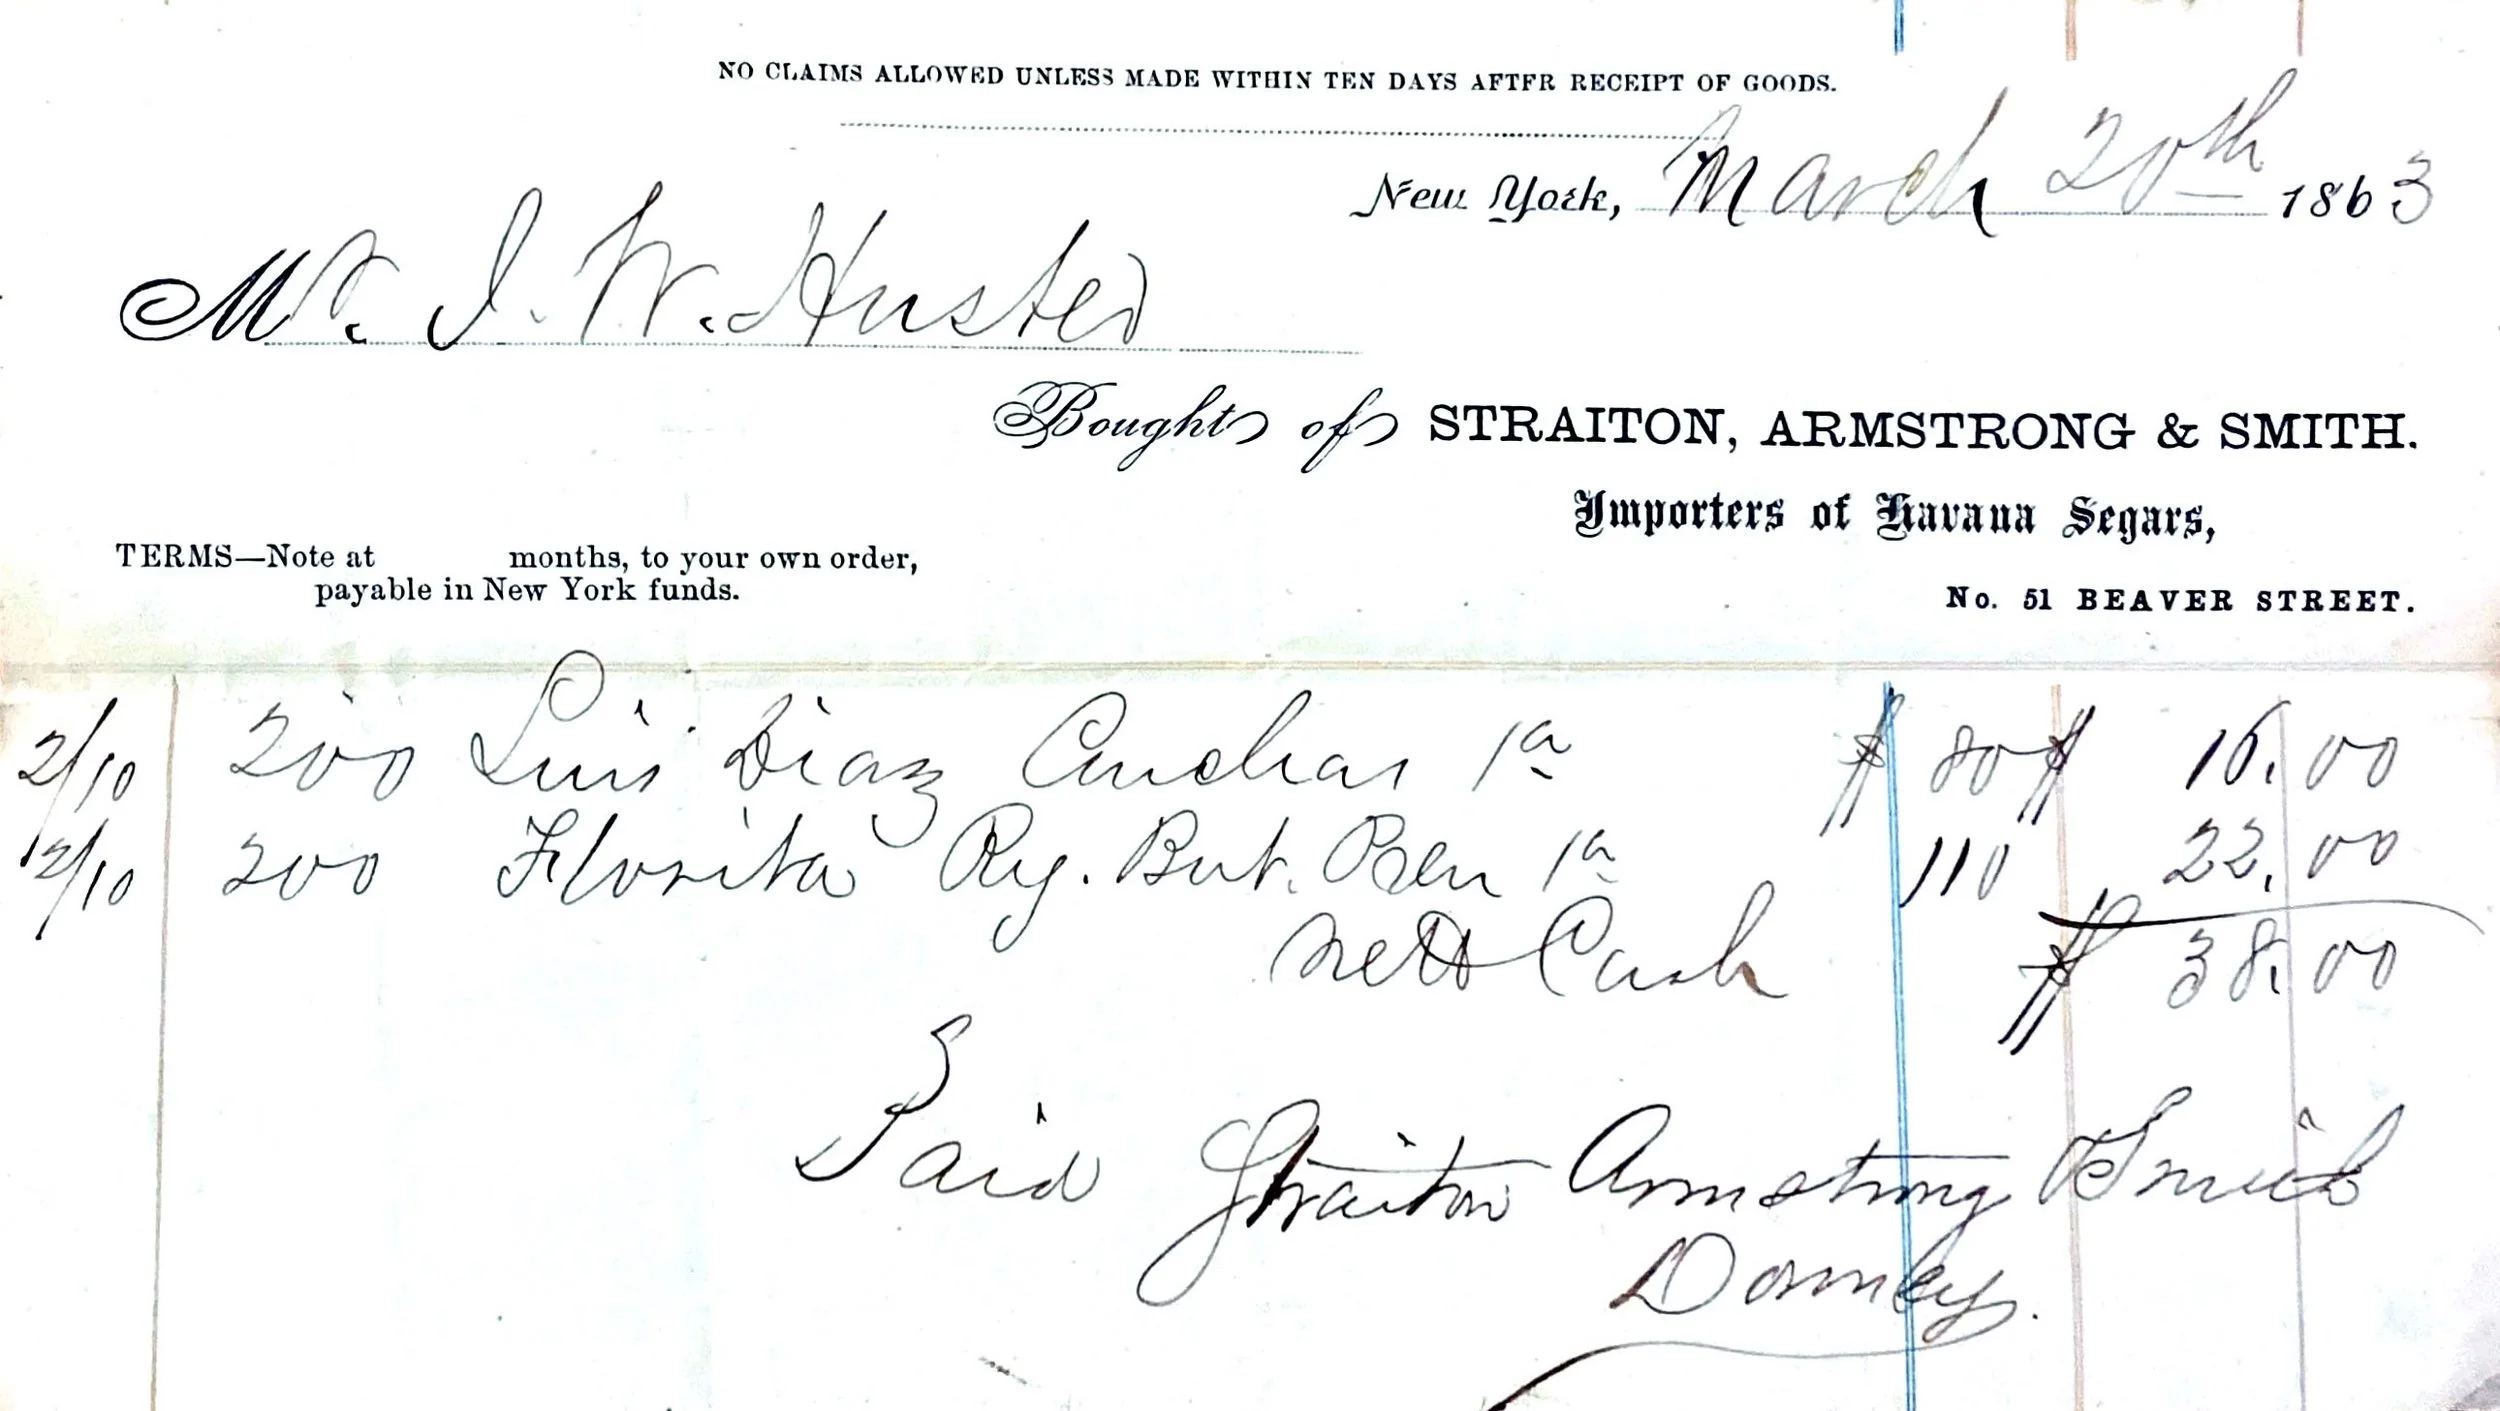 NO CLAIMS ALLOWED UNLESS MADE WITHIN TEN DAYS AFTER RECEIPT OF GOODS.
New York, March 20th 1863
Mr. J. W. Husted
Bought of STRAITON, ARMSTRONG & SMITH.
Importers of Havana Segars,
TERMS—Note at months, to your own order,
payable in New York funds.
No. 51 BEAVER STREET.
2/10 200 Luis Diaz Conchas 1a $ 80 $ 16.00
2/10 200 Florita Reg. Brit. 1a 110 22.00
Nett Cash $ 38.00
Paid Straiton Armstrong & Smith